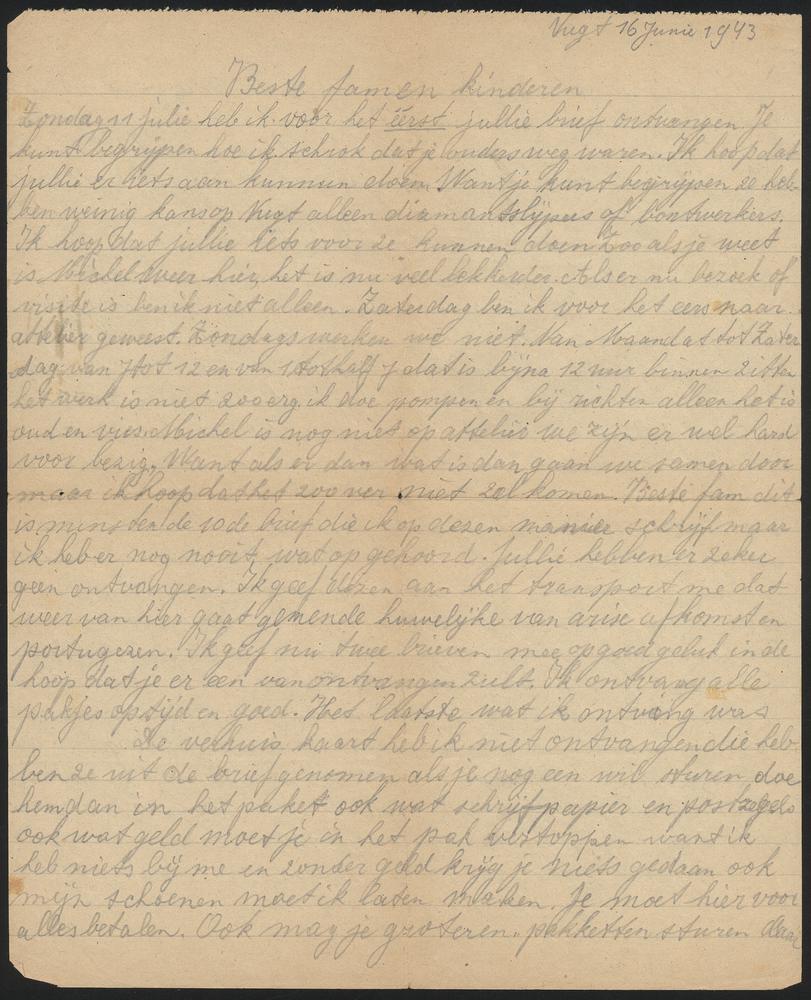 Vugt 16 Junie 1943
Beste fam en kinderen
Zondag 11 julie heb ik voor het eerst jullie brief ontvangen Je
kunt begrijpen hoe ik schrok dat je ouders weg waren. Ik hoop dat
jullie er iets aan kunnen doen. Want je kunt begrijpen ze heb-
ben weinig kans op Vugt alleen diamantslijpers of bontwerkers.
Ik hoop dat jullie iets voor ze kunnen doen Zooals je weet
is Michel weer hier, het is nu veel lekkerder. Als er nu bezoek of
visite is ben ik niet alleen. Zaterdag ben ik voor het eers naar
attelier geweest. Zondags werken we niet. Van Maandat tot Zater
dag van 7 tot 12 en van 1 tot half 7 dat is bijna 12 uur binnen zitten
het werk is niet zoo erg. ik doe pompen en bij richten alleen het is
oud en vies. Michel is nog niet op attelier we zijn er wel hard
voor bezig. Want als er dan wat is dan gaan we samen door
maar ik hoop dat het zoo ver niet zal komen. Beste fam dit
is minsten de 10de brief die ik op dezen manier schrijf maar
ik heb er nog nooit wat op gehoord. Jullie hebben er zeker
geen ontvangen. Ik geef dezen aan het transport me dat
weer van hier gaat gemende huwelijke van arise afkomst en
portugezen. Ik geef nu twee brieven mee op goed geluk in de
hoop dat je er een van ontvangen zult. Ik ontvang alle
pakjes op tijd en goed. Het laatste wat ik ontving was
De verhuis kaart heb ik niet ontvangen die heb
ben ze uit de brief genomen als je nog een wil sturen doe
hem dan in het paket ook wat schrijfpapier en postzegels
ook wat geld moet je in het pak verstoppen want ik
heb niets bij me en zonder geld krijg je niets gedaan ook
mijn schoenen moet ik laten maken. Je moet hier voor
alles betalen. Ook mag je groteren pakketten sturen daar